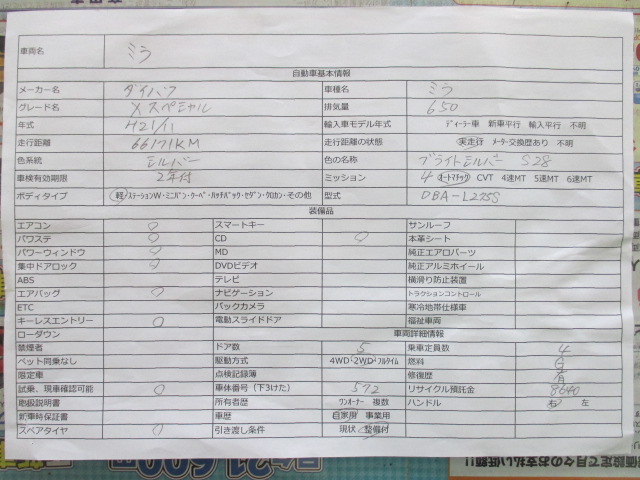 車両名 ミラ
自動車基本情報
メーカー名 ダイハツ 車種名 ミラ
グレード名 Xスペシャル 排気量 650
年式 H21/11 輸入車モデル年式 ディーラー車 新車平行 輸入平行 不明
走行距離 66171KM 走行距離の状態 実走行 メーター交換歴あり 不明
色系統 シルバー 色の名称 ブライトシルバー S28
車検有効期限 2年付 ミッション 4 オートマチック CVT 4速MT 5速MT 6速MT
ボディタイプ 軽・ステーションW・ミニバン・クーペ・ハッチバック・セダン・クロカン・その他 型式 DBA-L275S
装備品
エアコン ○ スマートキー サンルーフ
パワステ ○ CD ○ 本革シート
パワーウィンドウ ○ MD 純正エアロパーツ
集中ドアロック ○ DVDビデオ 純正アルミホイール
ABS テレビ 横滑り防止装置
エアバッグ ○ ナビゲーション トラクションコントロール
ETC バックカメラ 寒冷地帯仕様車
キーレスエントリー ○ 電動スライドドア 福祉車両
ローダウン 車両詳細情報
禁煙者 ドア数 5 乗車定員数 4
ペット同乗なし 駆動方式 4WD・2WD・フルタイム 燃料
限定車 点検記録簿 修復歴 有
試乗、現車確認可能 ○ 車体番号（下3けた） 572 リサイクル預託金 8640
取扱説明書 所有者歴 ワンオーナー 複数 ハンドル 右 左
新車時保証書 車歴 自家用 事業用
スペアタイヤ ○ 引き渡し条件 現状 整備付